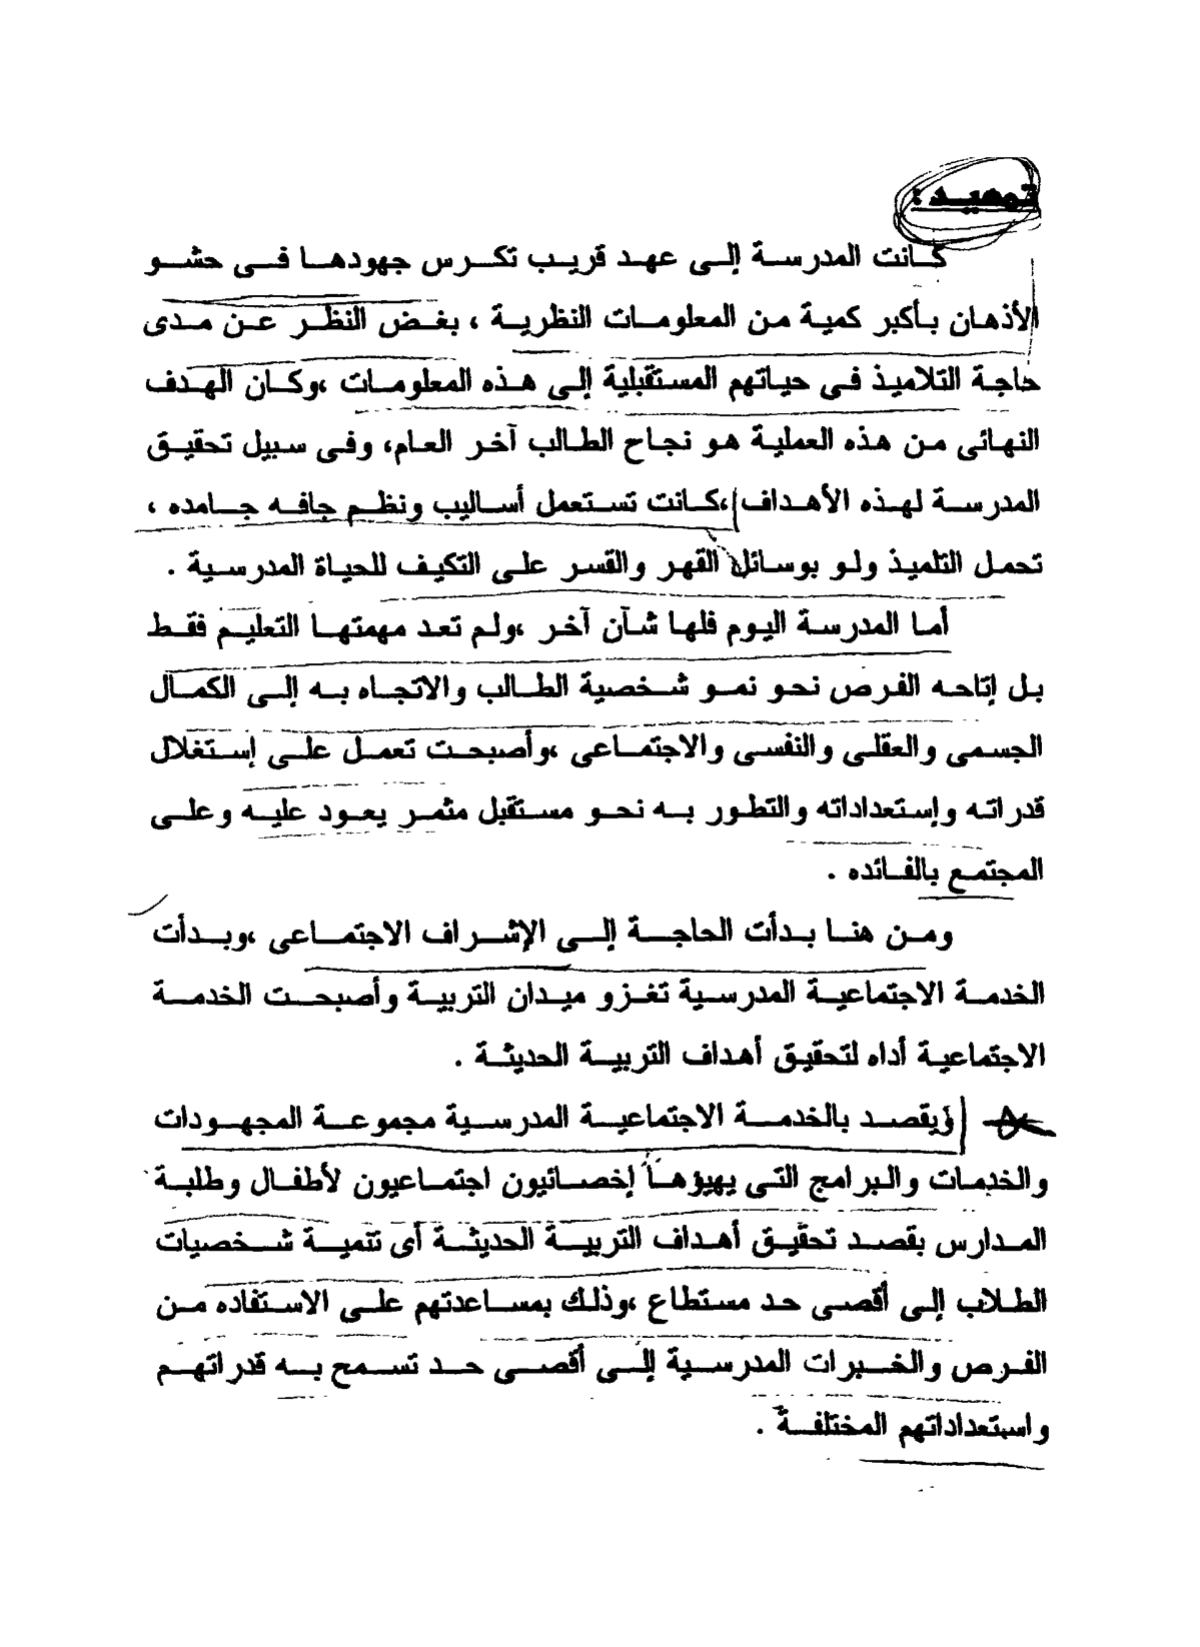 تمهيد :
كانت المدرسة إلى عهد قريب تكرس جهودها فى حشو
الأذهان بأكبر كمية من المعلومات النظرية ، بغض النظر عن مدى
حاجة التلاميذ فى حياتهم المستقبلية إلى هذه المعلومات ،وكان الهدف
النهائى من هذه العملية هو نجاح الطالب آخر العام، وفى سبيل تحقيق
المدرسة لهذه الأهداف ،كانت تستعمل أساليب ونظم جافه جامده ،
تحمل التلميذ ولو بوسائل القهر والقسر على التكيف للحياة المدرسية .
أما المدرسة اليوم فلها شآن آخر ،ولم تعد مهمتها التعليم فقط
بل إتاحه الفرص نحو نمو شخصية الطالب والاتجاه به إلى الكمال
الجسمى والعقلى والنفسى والاجتماعى ،وأصبحت تعمل على إستغلال
قدراته وإستعداداته والتطور به نحو مستقبل مثمر يعود عليه وعلى
المجتمع بالفائده .
ومن هنا بدأت الحاجة إلى الإشراف الاجتماعى ،وبدأت
الخدمة الاجتماعية المدرسية تغزو ميدان التربية وأصبحت الخدمة
الاجتماعية أداه لتحقيق أهداف التربية الحديثة .
ويقصد بالخدمة الاجتماعية المدرسية مجموعة المجهودات
والخدمات والبرامج التى يهيؤها إخصائيون اجتماعيون لأطفال وطلبة
المدارس بقصد تحقيق أهداف التربية الحديثة أى تنمية شخصيات
الطلاب إلى أقصى حد مستطاع ،وذلك بمساعدتهم على الاستفاده من
الفرص والخبرات المدرسية إلى أقصى حد تسمح به قدراتهم
واستعداداتهم المختلفة .